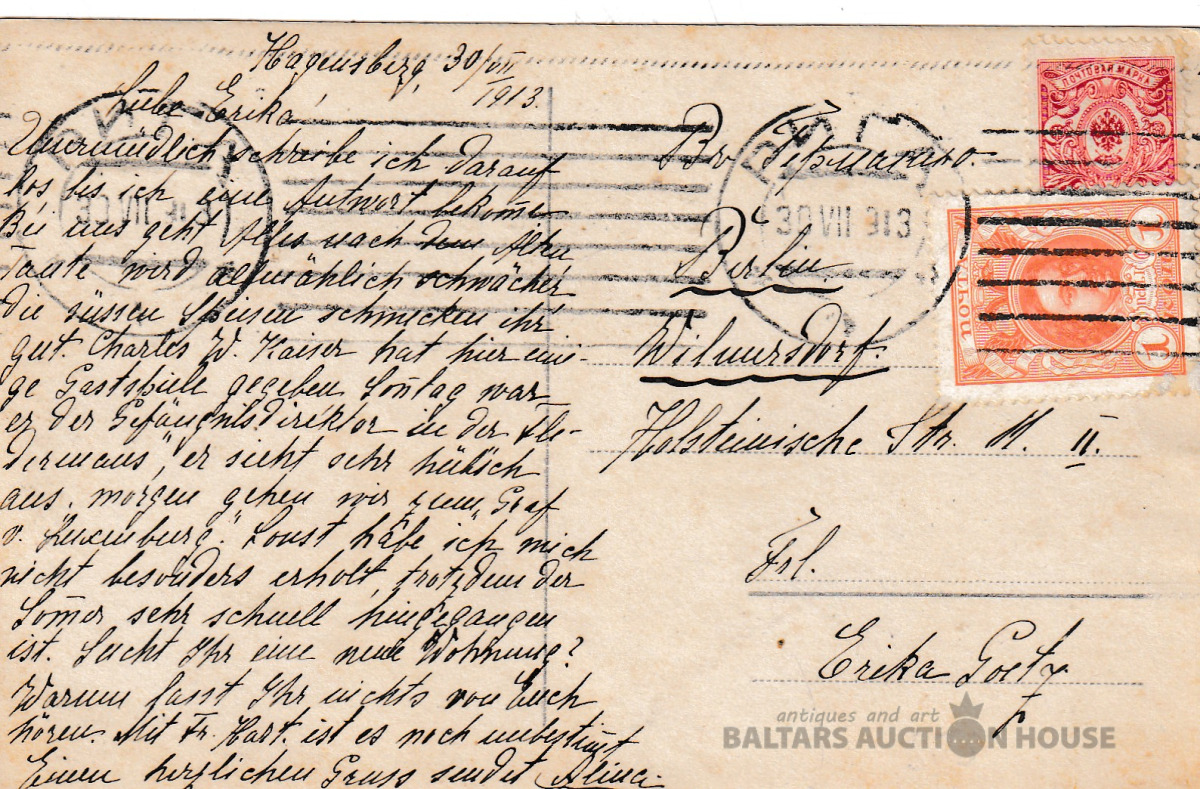 Hagensberg, 30/VII
1913.
Liebe Erika!
Unermüdlich schreibe ich darauf
los bis ich eine Antwort bekom̄e
Bei uns geht Alles nach dem Alten
Tante wird allmählich schwächer
die süssen Speisen schmecken ihr
gut. Charles W. Kaiser hat hier eini-
ge Gastspiele gegeben Son̄tag war
er der Gefängnisdirektor in der „Fle-
dermaus", er sieht sehr hübsch
aus. morgen gehen wir zum „Graf
v. Luxenburg." Sonst habe ich mich
nicht besonders erholt, trotzdem der
Som̄er sehr schnell hingegangen
ist. Sucht Ihr eine neue Wohnung?
Warum lasst Ihr nichts von Euch
hören. Mit Fr. Hart. ist es noch unbestim̄t
Einen herzlichen Gruss sendet Alina.
Въ Германию.
Berlin
Wilmersdorf.
Holsteinische Str. 11. II.
Frl.
Erika Goetz
ПОЧТОВАЯ МАРКА
РИГА
30 VII 913
РИГА
30 VII 913
1
1
antiques and art
BALTARS AUCTION HOUSE